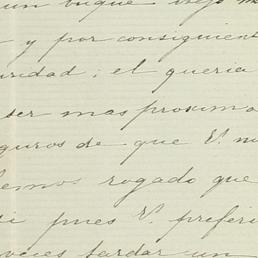 un buque viejo m
y por consiguient
uridad; el queria
ser mas proxima
guros de que V. no
hemos rogado que
si pues V. preferi
veces tardar un